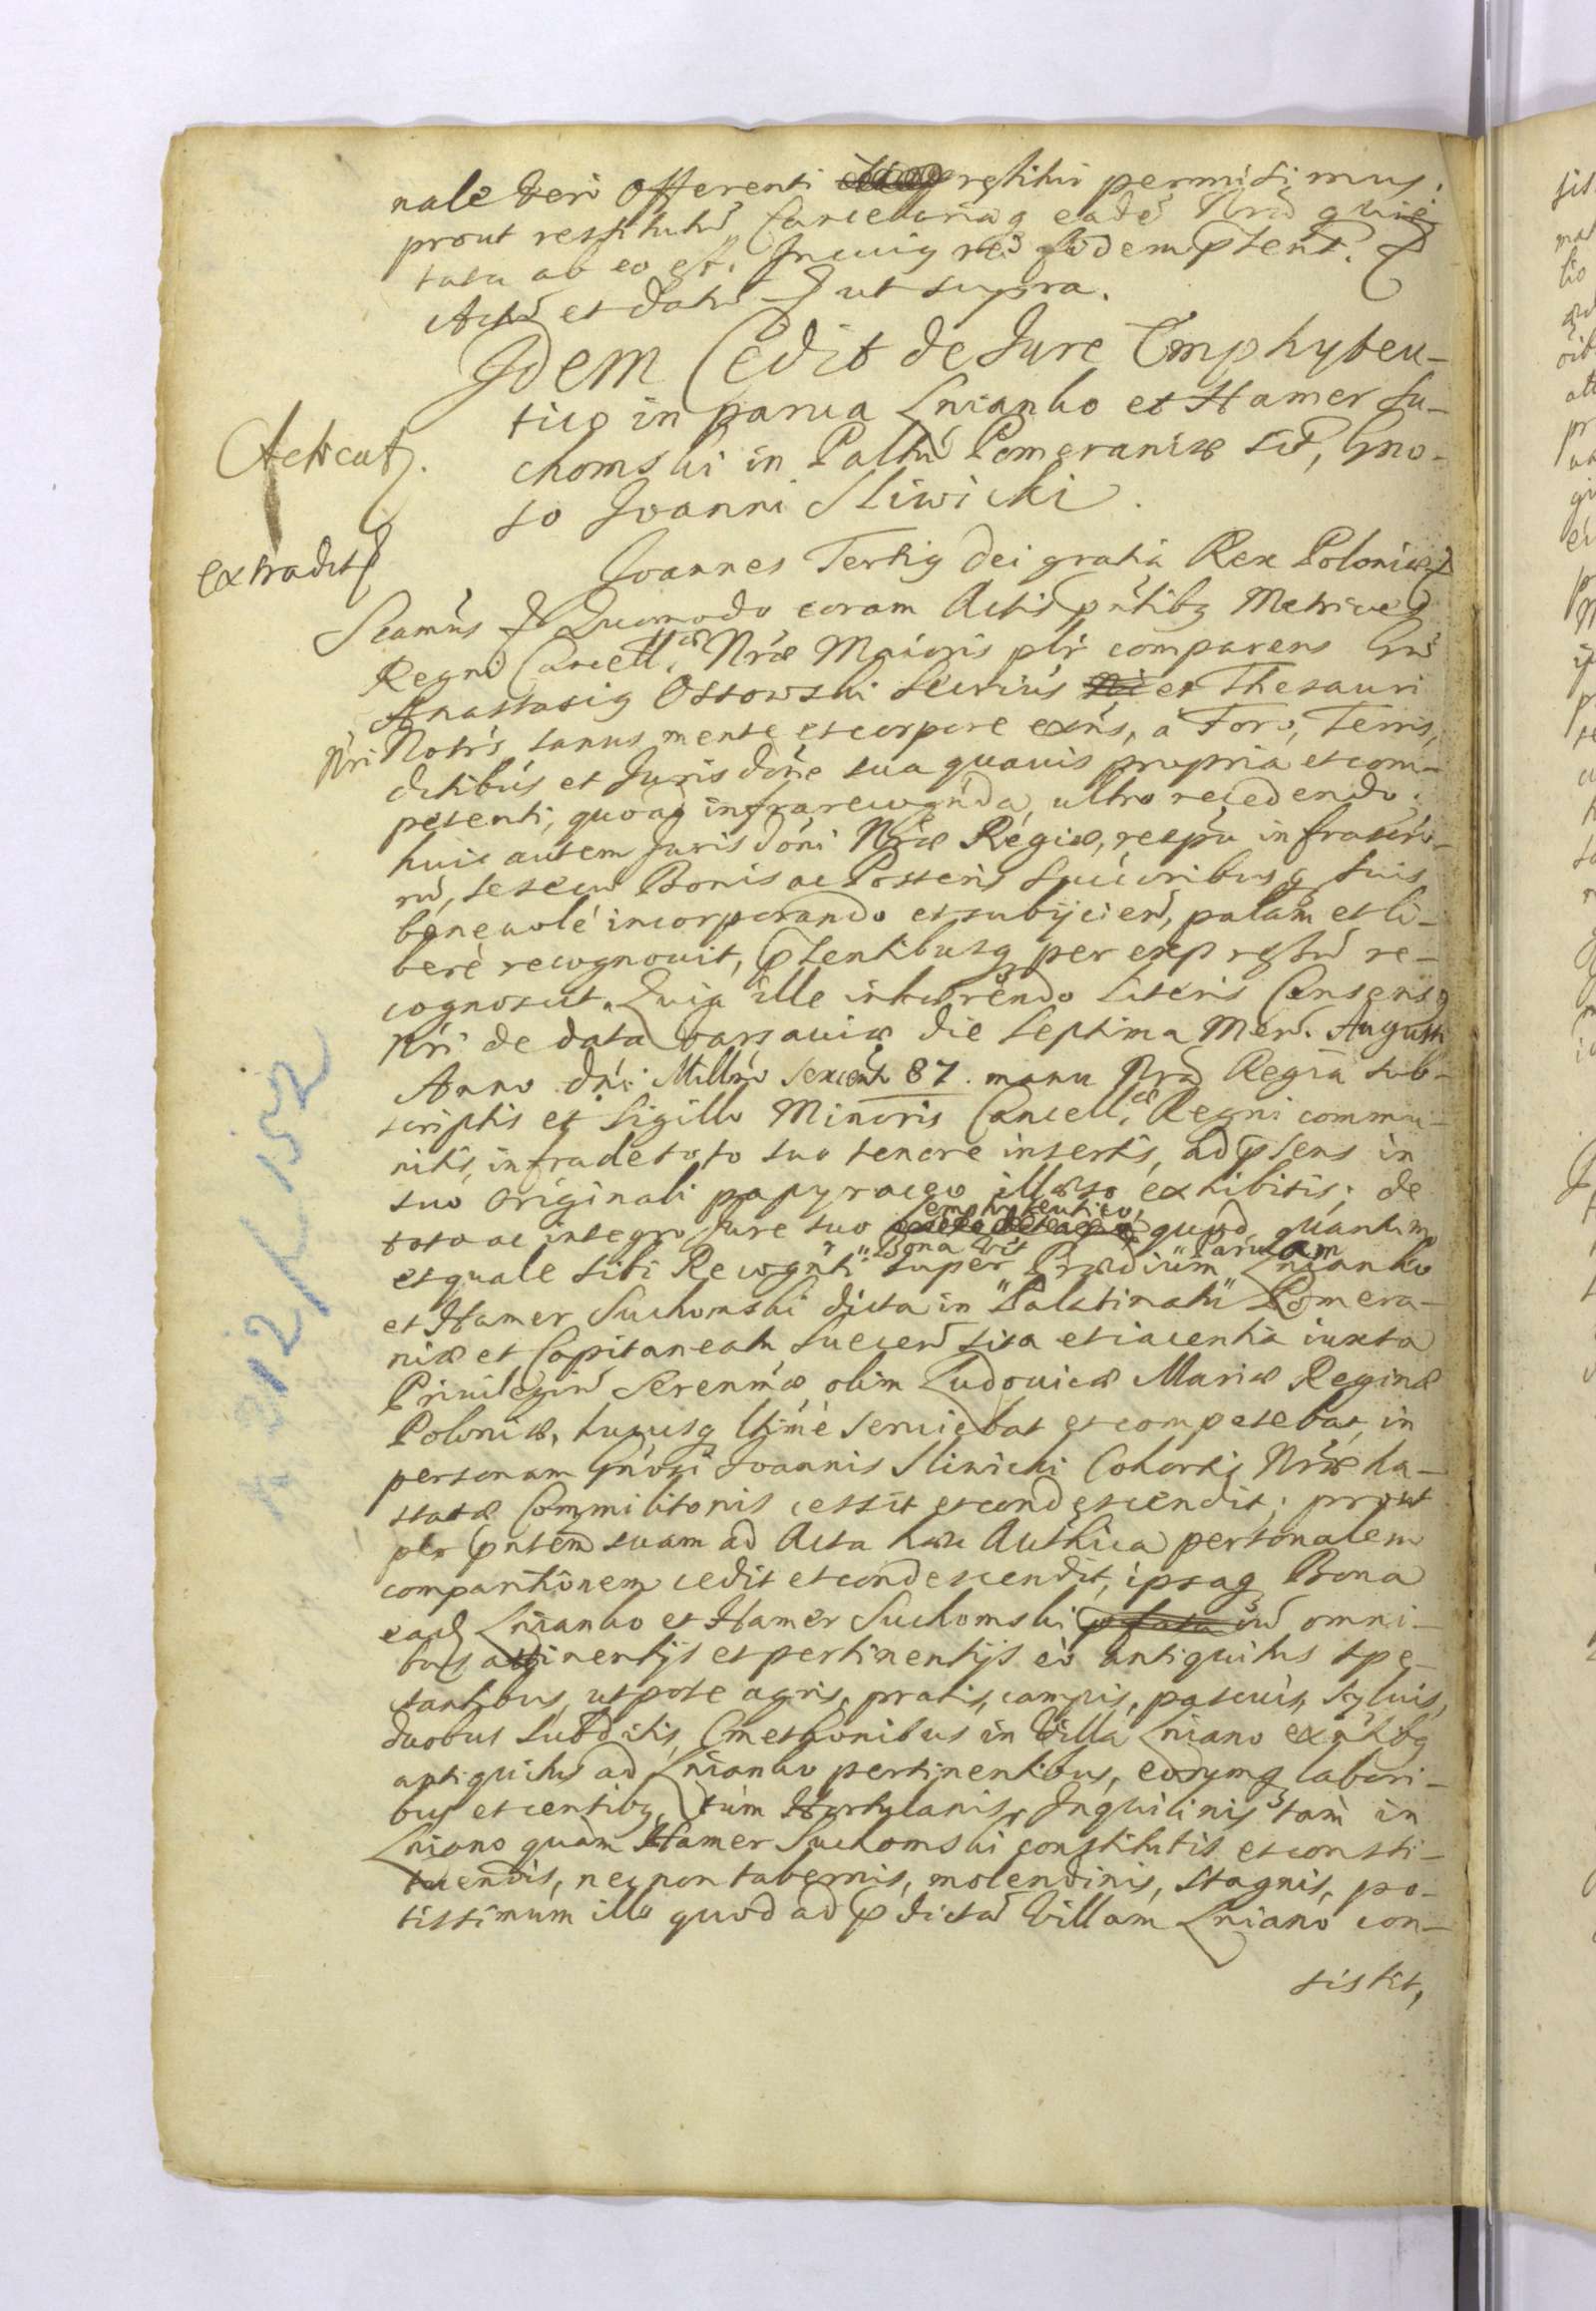 nale vero Offerenti restitui permisimus.
prout restitutū Cancellariaq eadē Nrā quie
tata ab eo est. In cuiq rei fidem pntes. &
Actū et datū & ut supra.
Idem Cedit de Jure Emphyteu-
tico in parua Lnianko et Hamer Su-
chomski in Paltū Pomeraniæ sit, Gno-
so Joanni Sliwicki.
Acticat.
extradit
Joannes Tertiq Dei gratia Rex Poloniæ &
Scamūs & Quomodo coram Actis pntibq Metrices
Regni Cancellæ Nræ Maioris plr comparens Gn̄s
Anastasiq Ossowski Secriūs et Thesauri
Nri Notrs, sanus mente et corpore exn̄s, a Foro, Terris,
ditibus et Jurisdone sua quauis propria et com-
petenti, quoad infra recognda, ultro recedendo.
huic autem Jurisdoni Nræ Regiæ, respu infrascrō-
rū, sese cū Bonis ac Posteris Succoribusq suis
beneuole incorporando et subijcien, palam et li-
berè recognouit, pntibusq per expressū re-
cognoscit. Quia ille inhærendo Literis Consensq
Nri de data Varsauiæ die Septima Men. Augusti
Anno dni Millmo Sexcento 87. manu Nrā Regiā sub-
scriptis et Sigillo Minoris Cancellæ Regni commu-
nitis, infra de toto suo tenore insertis, ad psens in
suo Originali papyraceo illæso exhibitis; de
toto ac integro Jure suo emphyteutico, quod quantum
et quale sibi Recognti super Bona Vit Prædium Paruam Lnianko
et Hamer Suchomski dicta in Palatinatu Pomera-
niæ et Capitaneatu Suecen sita et iacentia iuxta
Priuilegiū Serenmæ olim Ludouicæ Mariæ Reginæ
Poloniæ, hucusq ltimè seruiebat et competebat, in
personam Gnosi Joannis Sliwicki Cohortis Nræ ha-
statæ Commilitonis cessit et condescendit; prout
per pntem suam ad Acta hæc Authica personalem
comparitionem cedit et condescendit, ipsaq Bona
ead Lnianko et Hamer Suchomski cū omni-
bus attinentijs et pertinentijs eo antiquitus spe-
ctantibus, utpote agris, pratis, campis, pascuis, syluis,
duobus Subditis, Cmethonibus in Villa Lniano exntibq
antiquitus ad Lnianko pertinentibus, eorumq labori-
bus et censibq, tùm Hortulanis, Inquilinis tàm in
Lniano quàm Hamer Suchomski constitutis et consti-
tuendis, necnon tabernis, molendinis, stagnis, po-
tissimum illo quod ad pdictā Villam Lniano con-
sistit,